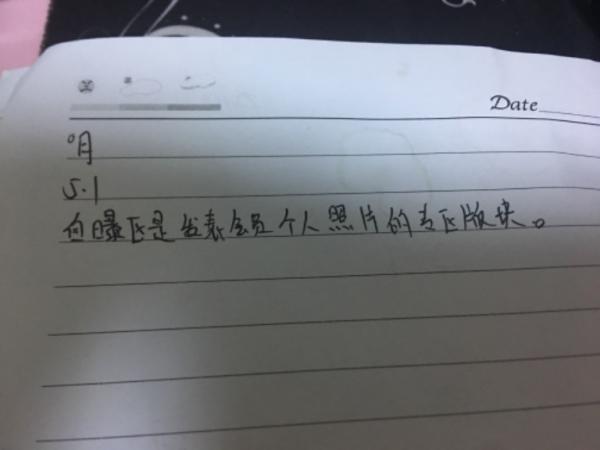 Date
0月
5.1
自曝区是发表会员个人照片的专区版块。